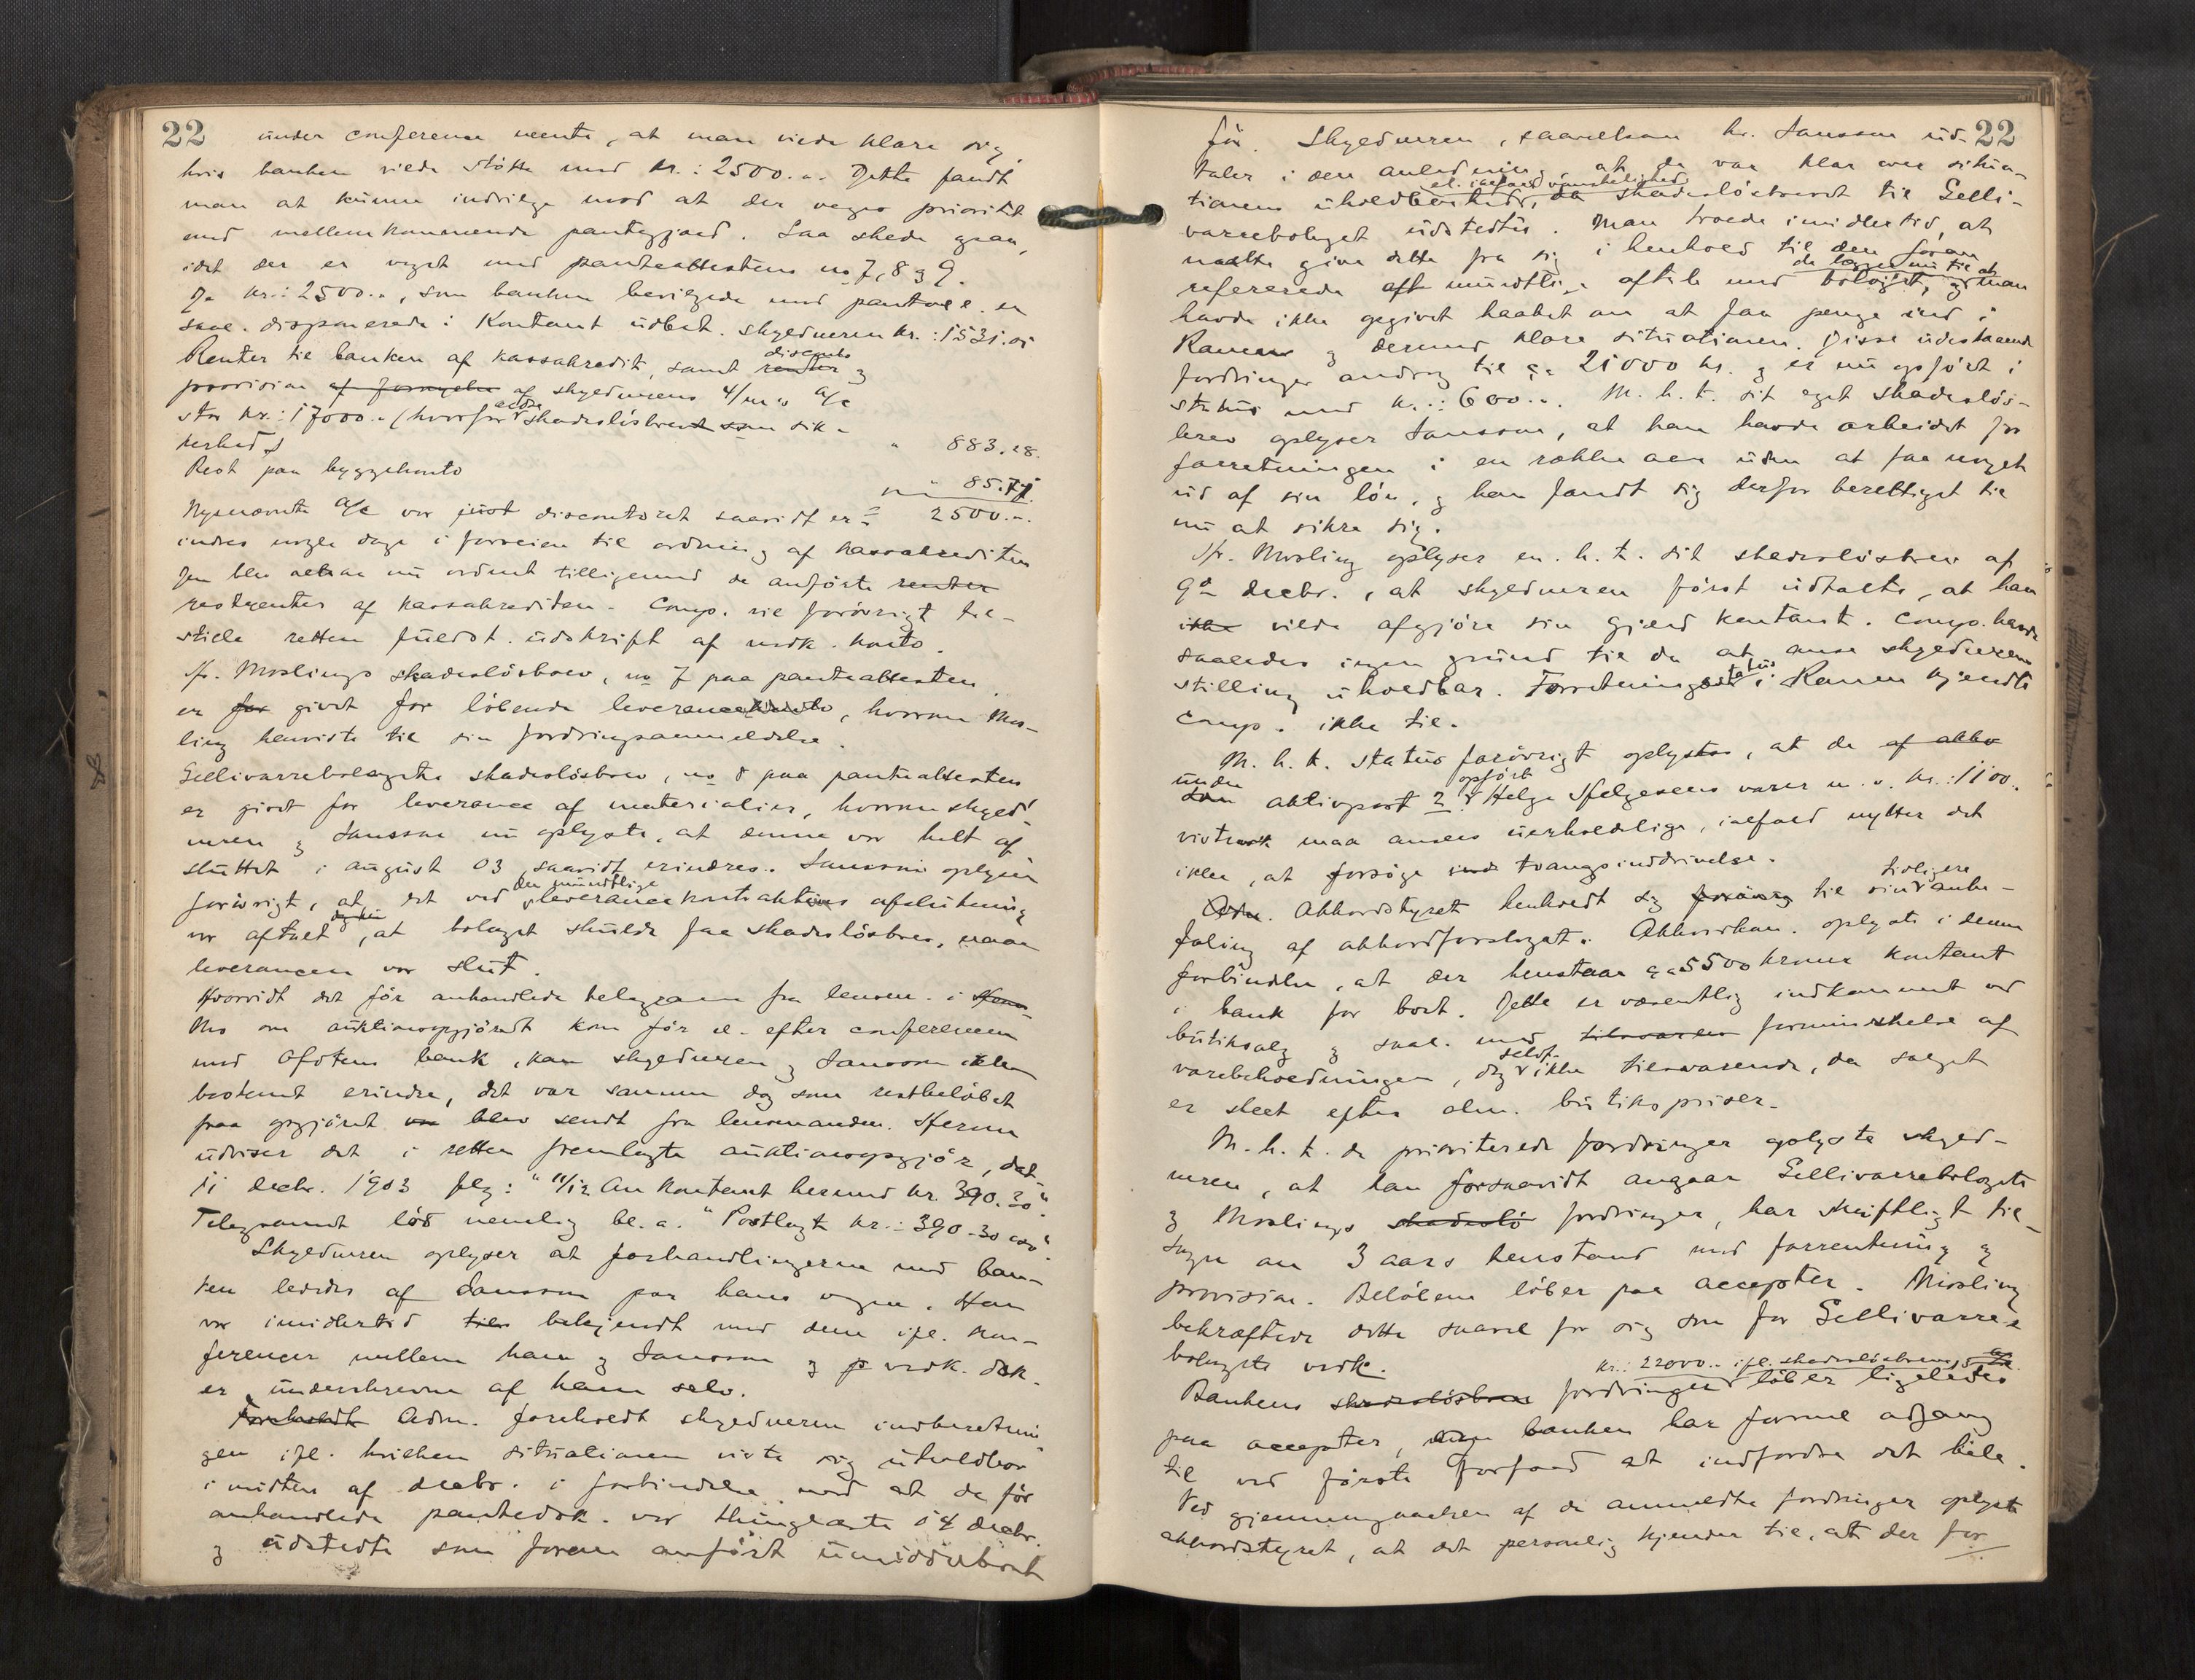 22
under conference mente, at man vilde klare sig,
hvis banken vilde støtte med kr.: 2500.-. Dette fandt
man at kunne indvilge mod at der veges prioritet
med mellemkommende pantegjæld. Saa skede ogsaa,
idet der er veget med panteattestens no 7, 8 og 9.
De kr.: 2500.-, som banken bevilgede mod pantvee. er
saal. disponerede: Kontant udbet. skyldneren kr.: 1531.01
Renter til banken af kassakredit, samt renter disconto og
provision af fornyelse af skyldnerens 4/m's a/c
stor kr.: 17000.- (hvorfor ældre skadesløsbrevet som sik-
kerhed) " 883.28.
Rest paa byggekonto " 85.71
Nysnævnte a/c var just discontøret saavidt er- = 2500.-.
indres nogle dage i forveien til ordning af kassakrediten
Den blev altsaa nu ordnet tilligemed de anførte renter
restrenter af kassakrediten. Comp. vil forøvrigt til-
stille retten fuldst. udskrift af vedk. konto.
Hr. Moslings skadesløsbrev, no 7 paa panteattesten
er for givet for løbende leverancekonto, hvorom Mos-
ling henviste til sin fordringsanmeldelse.
Gellivarrebolagets skadesløsbrev, no 8 paa panteattesten
er givet for leverance af materialier, hvorom skyld-
neren og Jansson nu oplyste, at denne var helt af
sluttet i august 03, saavidt erindres. Jansson oplyser
forøvrigt, at det ved den mundtlige leverancekontraktens afslutning
var aftalt, at bolaget skulde faa skadesløsbrev, naar
leverancen var slut.
Hvorvidt det før anhandlede telegram fra lensm. i
Mo om auktionsopgjøret kom før el. efter conferencen
med Ofotens bank, kan skyldneren og Jansson ikke
bestemt erindre, det var samme dag som restbeløbet
paa opgjøret var blev sendt fra lensmanden. Herom
udviser det i retten fremlagte auktionsopgjør, dat.
11 decbr. 1903 flg: "11/12 An Kontant hermed kr. 390.30".
Telegrammet lød nemlig bl. a. "Postlagt kr.: 390.30
Skyldneren oplyser at forhandlingerne med ban-
ken lededes af Jansson paa hans vegne. Han
var imidlertid til bekjendt med dem ifl. kon-
ferencer mellem ham og Jansson og vedk. dok.
er underskrevne af ham selv.
Foreholdt Adm. foreholdt skyldneren indberetnin-
gen ifl. hvilken situationen viste sig uholdbar
i midten af decbr. i forbindelse med at de før
anhandlede pantedok. var thinglæste 14 decbr.
og udstedte som foran anført umiddelbart
22
før. Skyldneren, saavelsom hr. Jansson ud-
taler i den anledning, at de var klar over situa-
tionens uholdbarhed, el. ialfald vanskelighed da skadesløsbrevet til Gelli-
varrebolaget udstedtes. Man troede imidlertid, at
maatte give dette fra sig i henhold til den foran
refererede aft mundtlige aftale med bolaget, og man
havde ikke opgivet haabet om at faa penge ind i
Ranen og dermed klare situationen. Disse udestaaende
fordringer androg til ca 21000 kr. og er nu opført i
status med kr.: 600.-. M. h. t. sit eget skadesløs-
brev oplyser Jansson, at han havde arbeidet for
forretningen i en række aar uden at faa noget
ud af sin løn, og han fandt sig derfor berettiget til
nu at sikre sig.
Hr. Mosling oplyser m. h. t. sit skadesløsbrev af
9de decbr., at skyldneren først udtalte, at han
ikke vilde afgjøre sin gjæld kontant. Comp. havde
saaledes ingen grund til da at anse skyldnerens
stilling uholdbar. Forretningsstatus i Ranen kjendte
comp. ikke til.
M. h. t. status forøvrigt oplystes, at de af akko
under aktivpost 2 opført Helge Helgesens varer m. v. kr.: 1100.-
vistnok maa ansees uerholdelige, ialfald nytter det
ikke, at forsøge ind tvangsinddrivelse.
Adm. Akkordstyret henholdt sig forøvrig til sin tidligere anbe-
faling af akkordforslaget. Akkordkom. oplyste i denne
forbindelse, at der henstaar ca 5500 kroner kontant
i bank for boet. Dette er væsentlig indkommet ved
butiksalg og saal. med tilsvarende formindskelse af
varebeholdningen, dog selvf. ikke tilsvarende, da salget
er skeet efter alm. butikspriser.
M. h. t. de prioriterede fordringer oplyste skyld-
neren, at han forsaavidt angaar Gellivarrebolagets
og Moslings skadeslø fordringer, har skriftligt til-
sagn om 3 aars henstand med forrentning og
provision. Beløbene løber paa accepter. Mosling
bekræftede dette saavel for sig som for Gellivarre-
bolagets vedk.
Bankens skadesløsbrev fordringer kr.: 22000.- ifl. skadesløsbrev løber ligeledes
paa accepter, men banken har formel adgang
til ved første forfald at indfordre det hele.
Ved gjennemgaaelsen af de anmeldte fordringer oplyste
akkordstyret, at det personlig kjender til, at der for